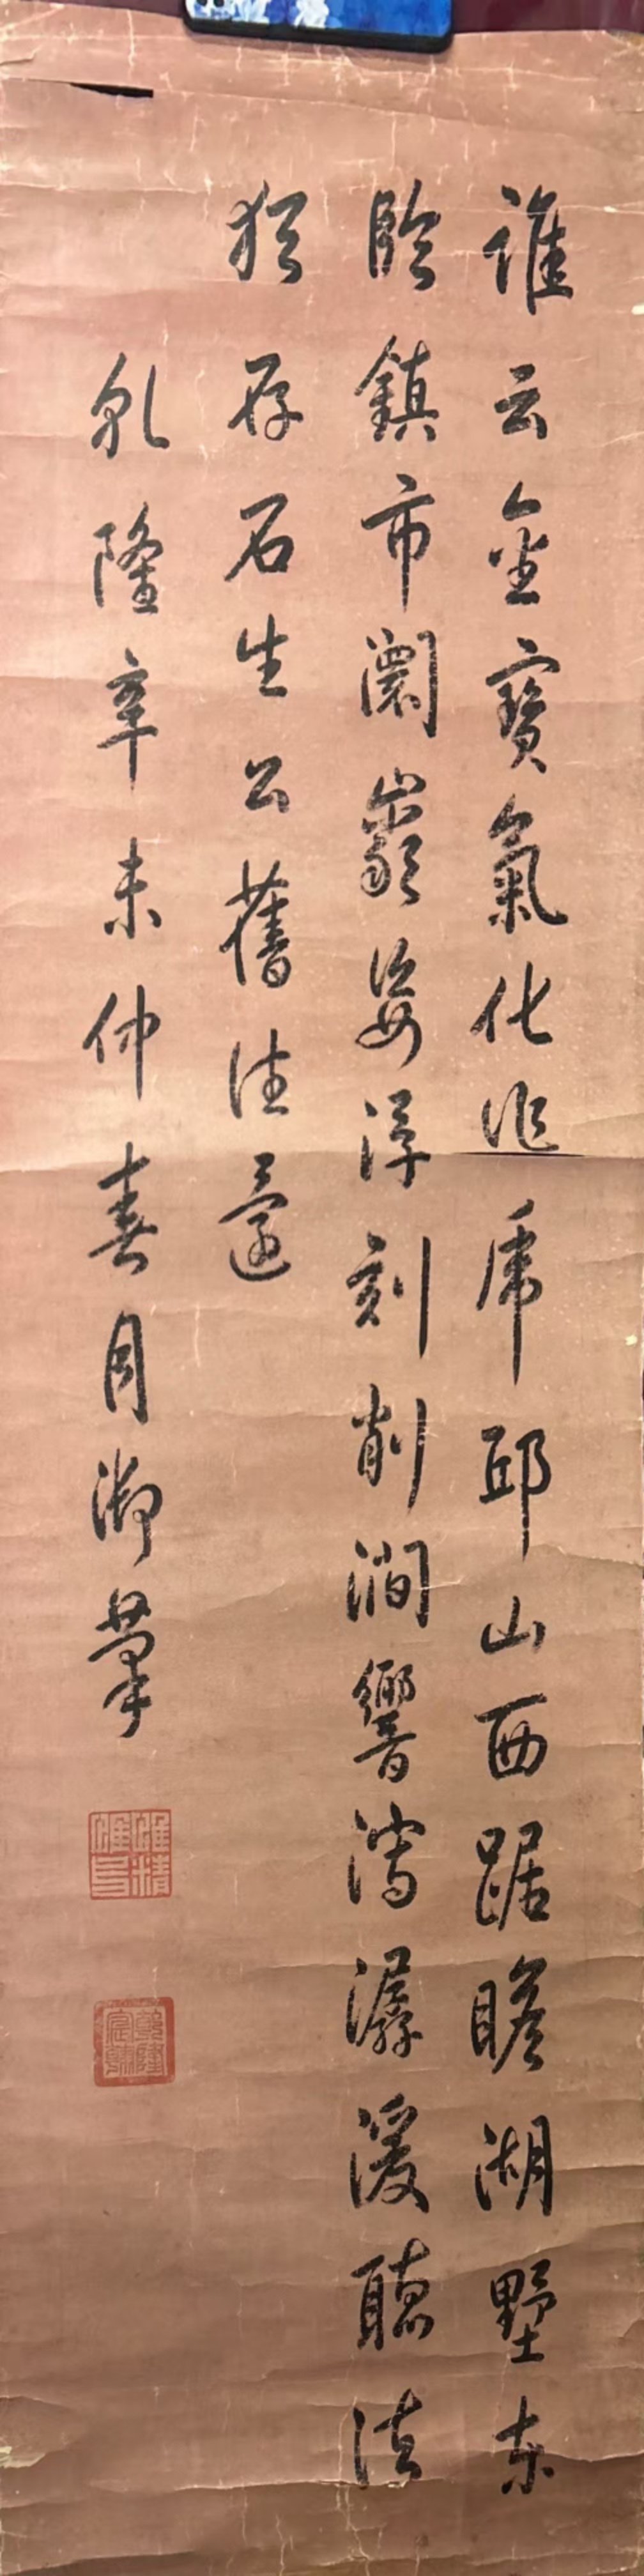 誰云金寶氣化作虎邱山西踞瞻湖墅東
臨鎮市闤巖姿淳刻削澗響瀉潺湲聽法
猶存石生公舊往還
乾隆辛未仲春月御筆
惟精惟一
乾隆宸翰